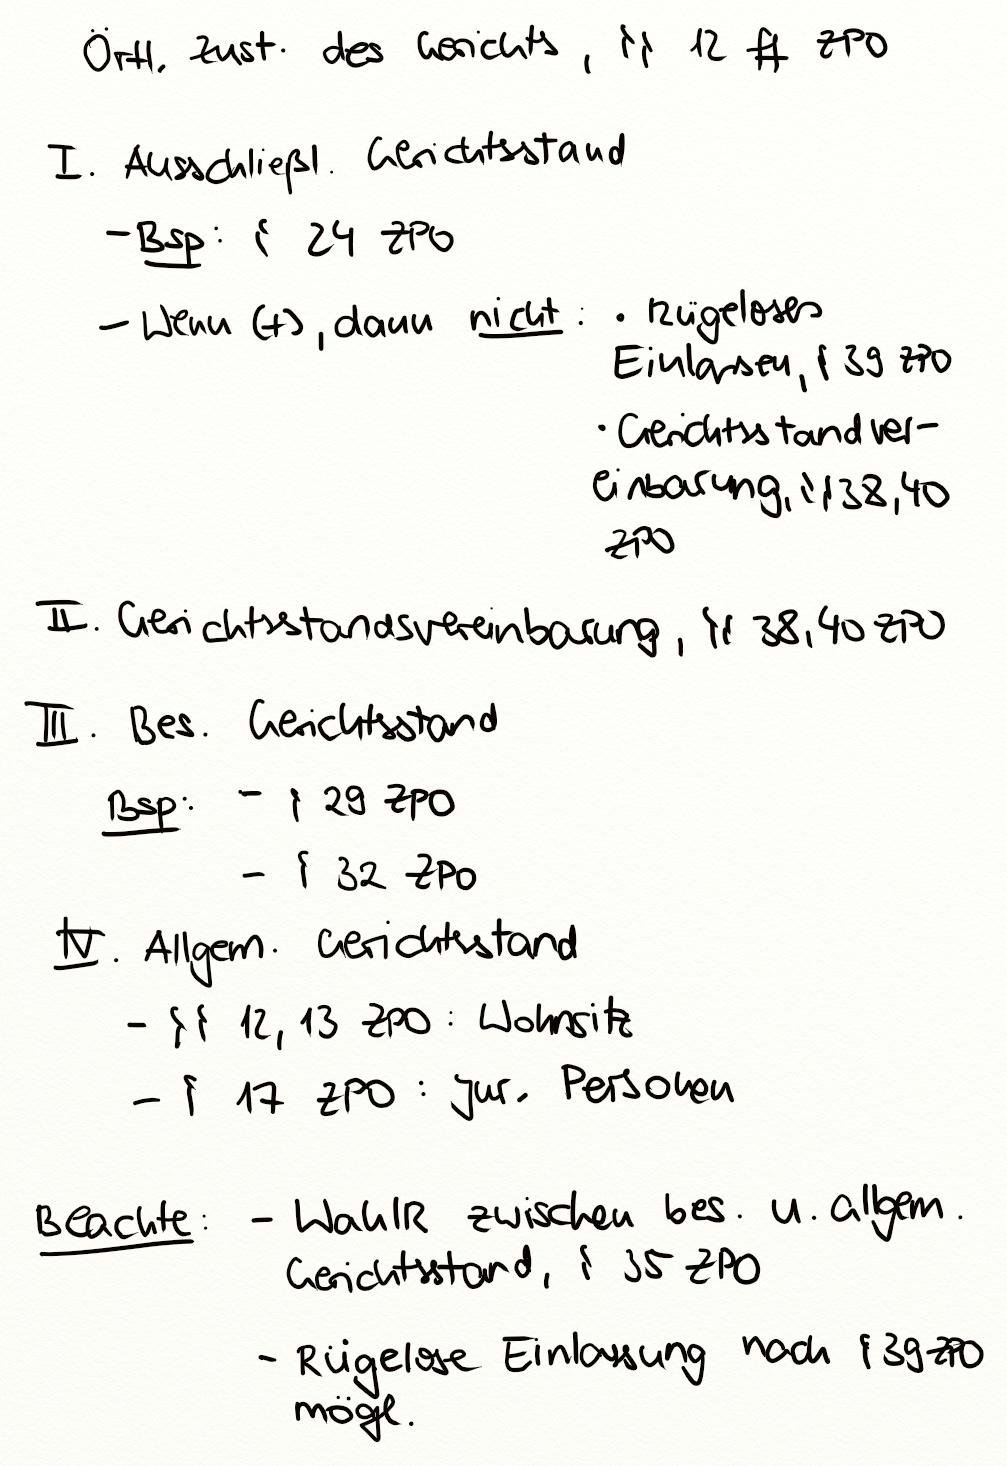 Örtl. Zust. des Gerichts, §§ 12 ff ZPO
I. Ausschließl. Gerichtsstand
- Bsp: § 24 ZPO
- Wenn (+), dann nicht: • Rügeloses
Einlassen, § 39 ZPO
• Gerichtsstandver-
einbarung, §§ 38, 40
ZPO
II. Gerichtsstandsvereinbarung, §§ 38, 40 ZPO
III. Bes. Gerichtsstand
Bsp: - § 29 ZPO
- § 32 ZPO
IV. Allgem. Gerichtsstand
- §§ 12, 13 ZPO: Wohnsitz
- § 17 ZPO: jur. Personen
Beachte: - WahlR zwischen bes. u. allgem.
Gerichtsstand, § 35 ZPO
- Rügelose Einlassung nach § 39 ZPO
mögl.